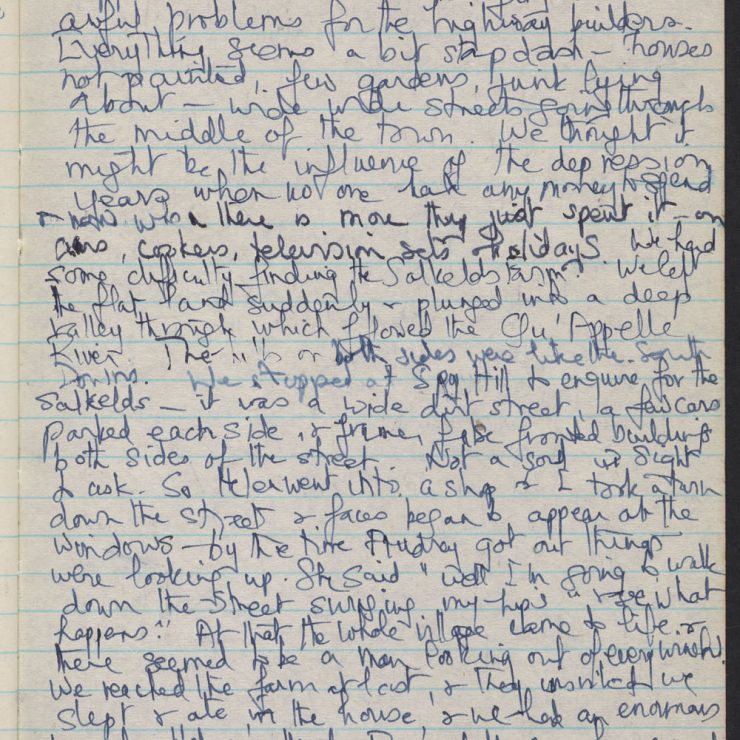 awful problems for the highway builders.
Everything seems a bit slapdash – houses
not painted, few gardens, junk lying
about – wide wide streets going through
the middle of the town. We thought it
might be the influence of the depression
years when no one had any money to spend
& now when there is more they just spent it – on
cars, cookers, television sets & holidays. We had
some difficulty finding the Salkelds farm. We left
the flat land suddenly & plunged into a deep
valley through which flowed the Qu'Appelle
River. The hills on both sides were like the South
Downs. We stopped at Spy Hill to enquire for the
Salkelds – it was a wide dirt street, a few cars
parked each side, & frame, false fronted buildings
both sides of the street. Not a soul in sight
to ask. So Peter went into a shop & I took a turn
down the street & faces began to appear at the
windows – by the time Audrey got out things
were looking up. She said "well I'm going to walk
down the street swinging my hips & see what
happens." At that the whole village came to life &
there seemed to be a man looking out of every window.
We reached the farm at last, & they insisted we
slept & ate in the house, & we had an enormous